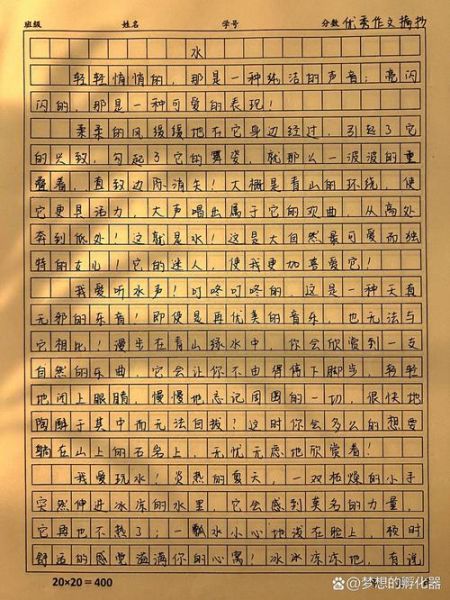 班级 姓名 学号 分数 优秀作文摘抄
水
轻轻悄悄的，那是一种纯洁的声音；亮闪
闪的，那是一种可爱的表现！
柔柔的风缓缓地在它身边经过，引起了它
的兴致，勾起了它的舞姿，就那么一波波的重
叠着，直致边际消失！大概是青山的环绕，使
它更具活力，大声唱出属于它的欢曲，从高处
奔到低处！这就是水！这是大自然最可爱而独
特的女儿！它的迷人，使我更加喜爱它！
我爱听水声！叮咚叮咚的，这是一种天真
无邪的乐音！即使是再优美的音乐，也无法与
它相比！漫步在青山绿水中，你会欣赏到一支
自然的乐曲，它会让你不由得停下脚步，轻轻
地闭上眼睛，慢慢地忘记周围的一切，很快地
陶醉于其中而无法自我！这时你会多么的想要
躺在山上的石岩上，无忧无虑地欣赏着！
我爱玩水！炎热的夏天，一双枯燥的小手
突然伸进冰冻的水里，它会感到莫名的力量，
它再也不热了；一瓢水小心地泼在脸上，顿时
舒适的感觉溢满你的心窝！冰冰冻冻地，有说
20×20=400
@梦想的孵化器